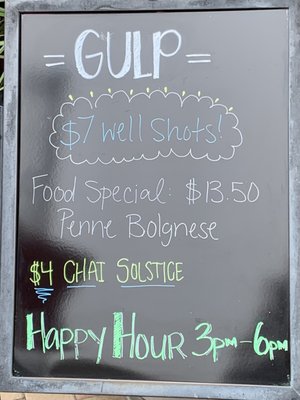 = GULP =
$7 Well Shots!
Food Special: $13.50
Penne Bolgnese
$4 CHAI SOLSTICE
HAPPY HOUR 3pm-6pm